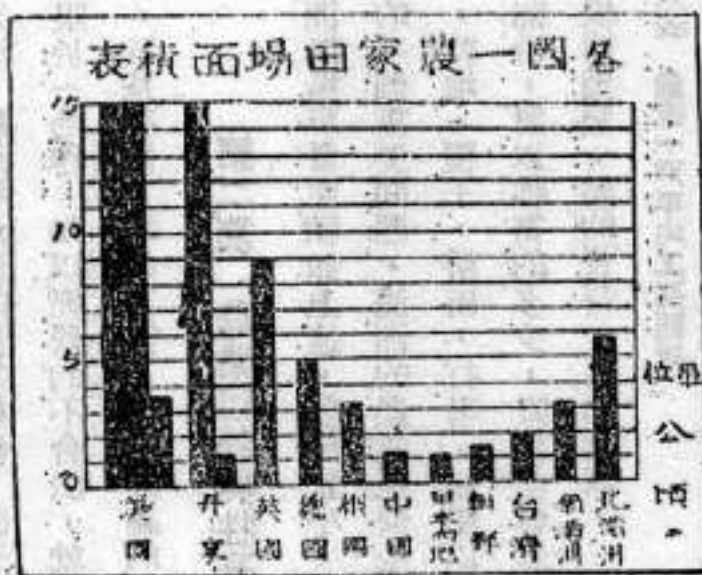 各國一農家田場面積表
15
10
5
0
單位
公頃
美國
丹麥
英國
德國
中國
朝鮮
台灣
南滿洲
北滿洲